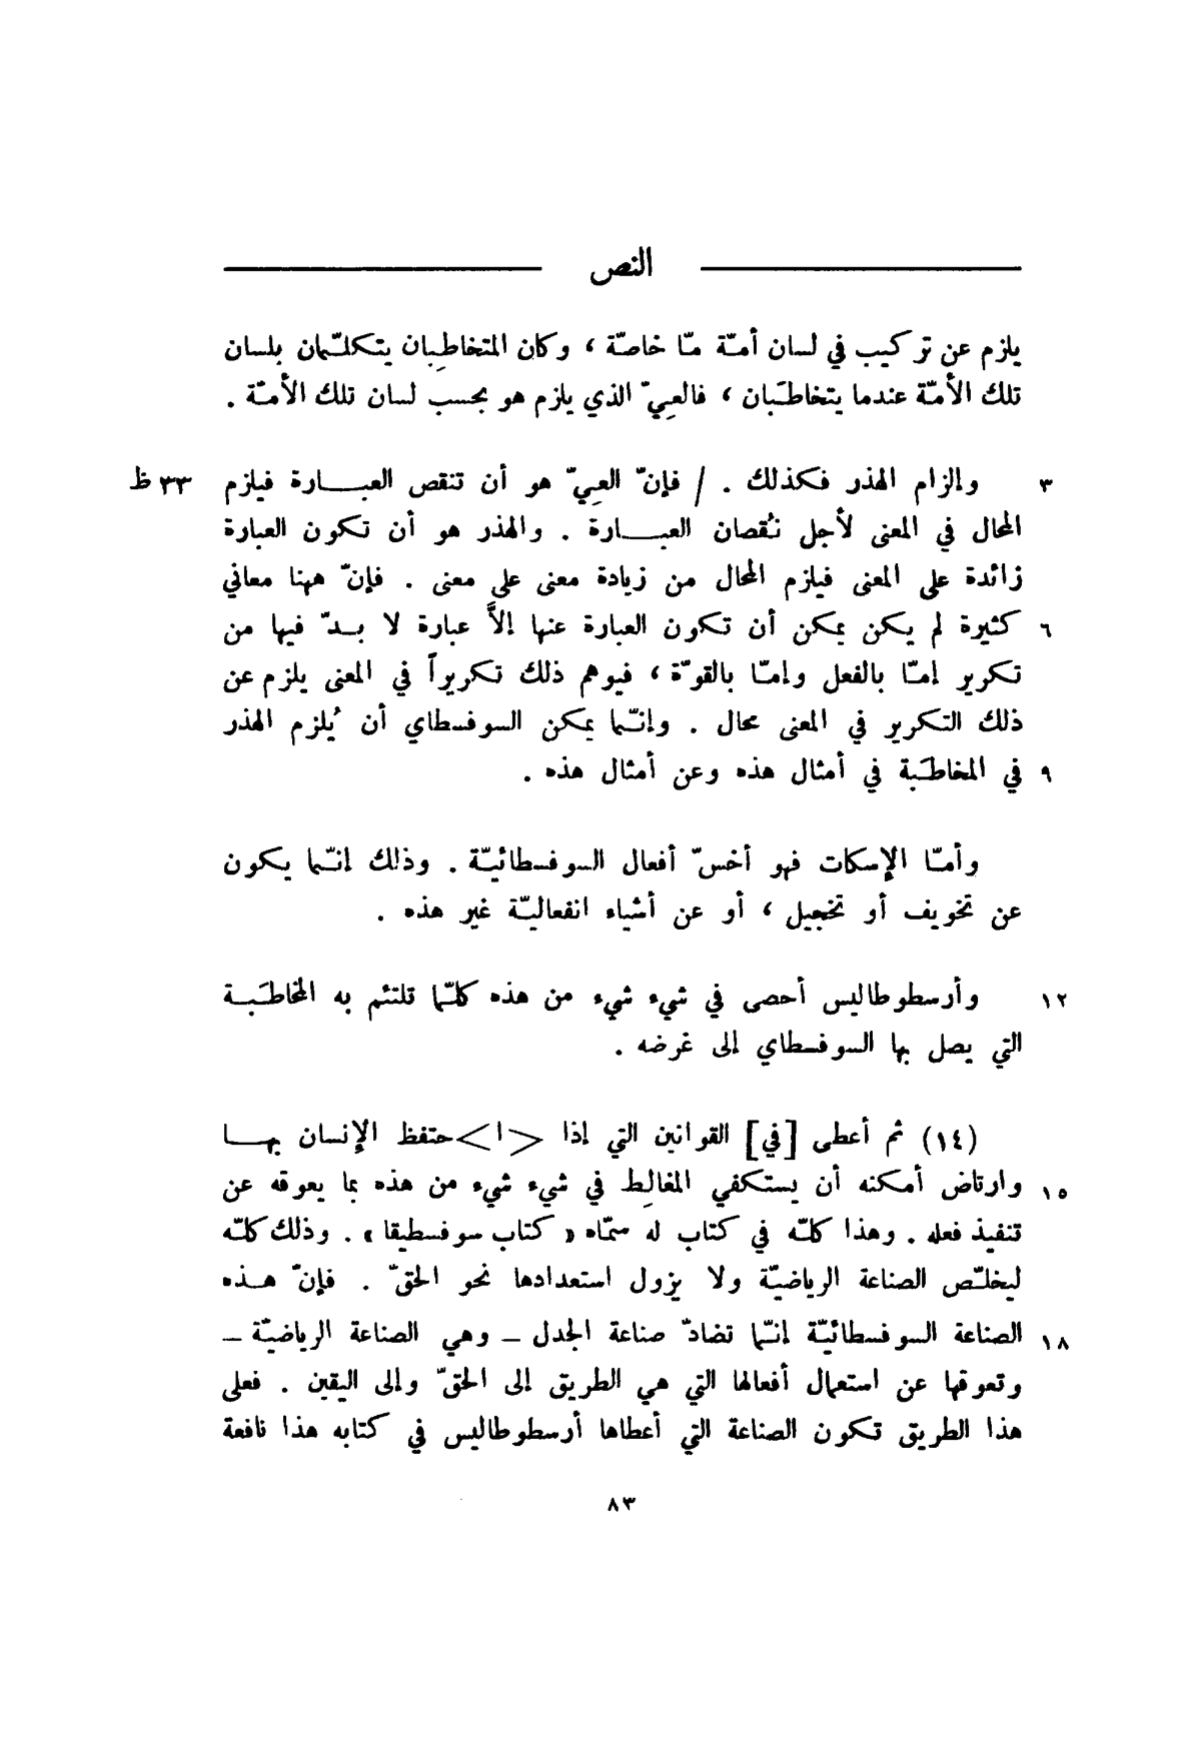 النص
يلزم عن تركيب في لسان أمّة مّا خاصّة ، وكان المتخاطِبان يتكلّمان بلسان
تلك الأمّة عندما يتخاطَبان ، فالعِيّ الذي يلزم هو بحسب لسان تلك الأمّة .
٣ وإلزام الهذر فكذلك . / فإنّ العِيّ هو أن تنقص العبـــارة فيلزم ٣٣ ظ
المحال في المعنى لأجل نُقصان العبـــارة . والهذر هو أن تكون العبارة
زائدة على المعنى فيلزم المحال من زيادة معنى على معنى . فإنّ ههنا معاني
٦ كثيرة لم يكن يمكن أن تكون العبارة عنها إلاّ عبارة لا بـدّ فيها من
تكرير إمّا بالفعل وإمّا بالقوّة ، فيوهم ذلك تكريراً في المعنى يلزم عن
ذلك التكرير في المعنى محال . وإنّما يمكن السوفسطاي أن يُلزم الهذر
٩ في المخاطَبة في أمثال هذه وعن أمثال هذه .
وأمّا الإسكات فهو أخسّ أفعال السوفسطائيّة . وذلك إنّما يكون
عن تخويف أو تخجيل ، أو عن أشياء انفعاليّة غير هذه .
١٢ وأرسطوطاليس أحصى في شيء شيء من هذه كلّما تلتئم به المخاطَبـة
التي يصل بها السوفسطاي إلى غرضه .
(١٤) ثم أعطى [في] القوانين التي إذا <ا>حتفظ الإنسان بهـــا
١٥ وارتاض أمكنه أن يستكفي المغالِط في شيء شيء من هذه بما يعوقه عن
تنفيذ فعله . وهذا كلّه في كتاب له سمّاه « كتاب سوفسطيقا » . وذلك كلّه
ليخلّص الصناعة الرياضيّة ولا يزول استعدادها نحو الحقّ . فإنّ هـذه
١٨ الصناعة السوفسطائيّة إنّما تضادّ صناعة الجدل – وهي الصناعة الرياضيّة –
وتعوقها عن استعمال أفعالها التي هي الطريق إلى الحقّ وإلى اليقين . فعلى
هذا الطريق تكون الصناعة التي أعطاها أرسطوطاليس في كتابه هذا نافعة
٨٣